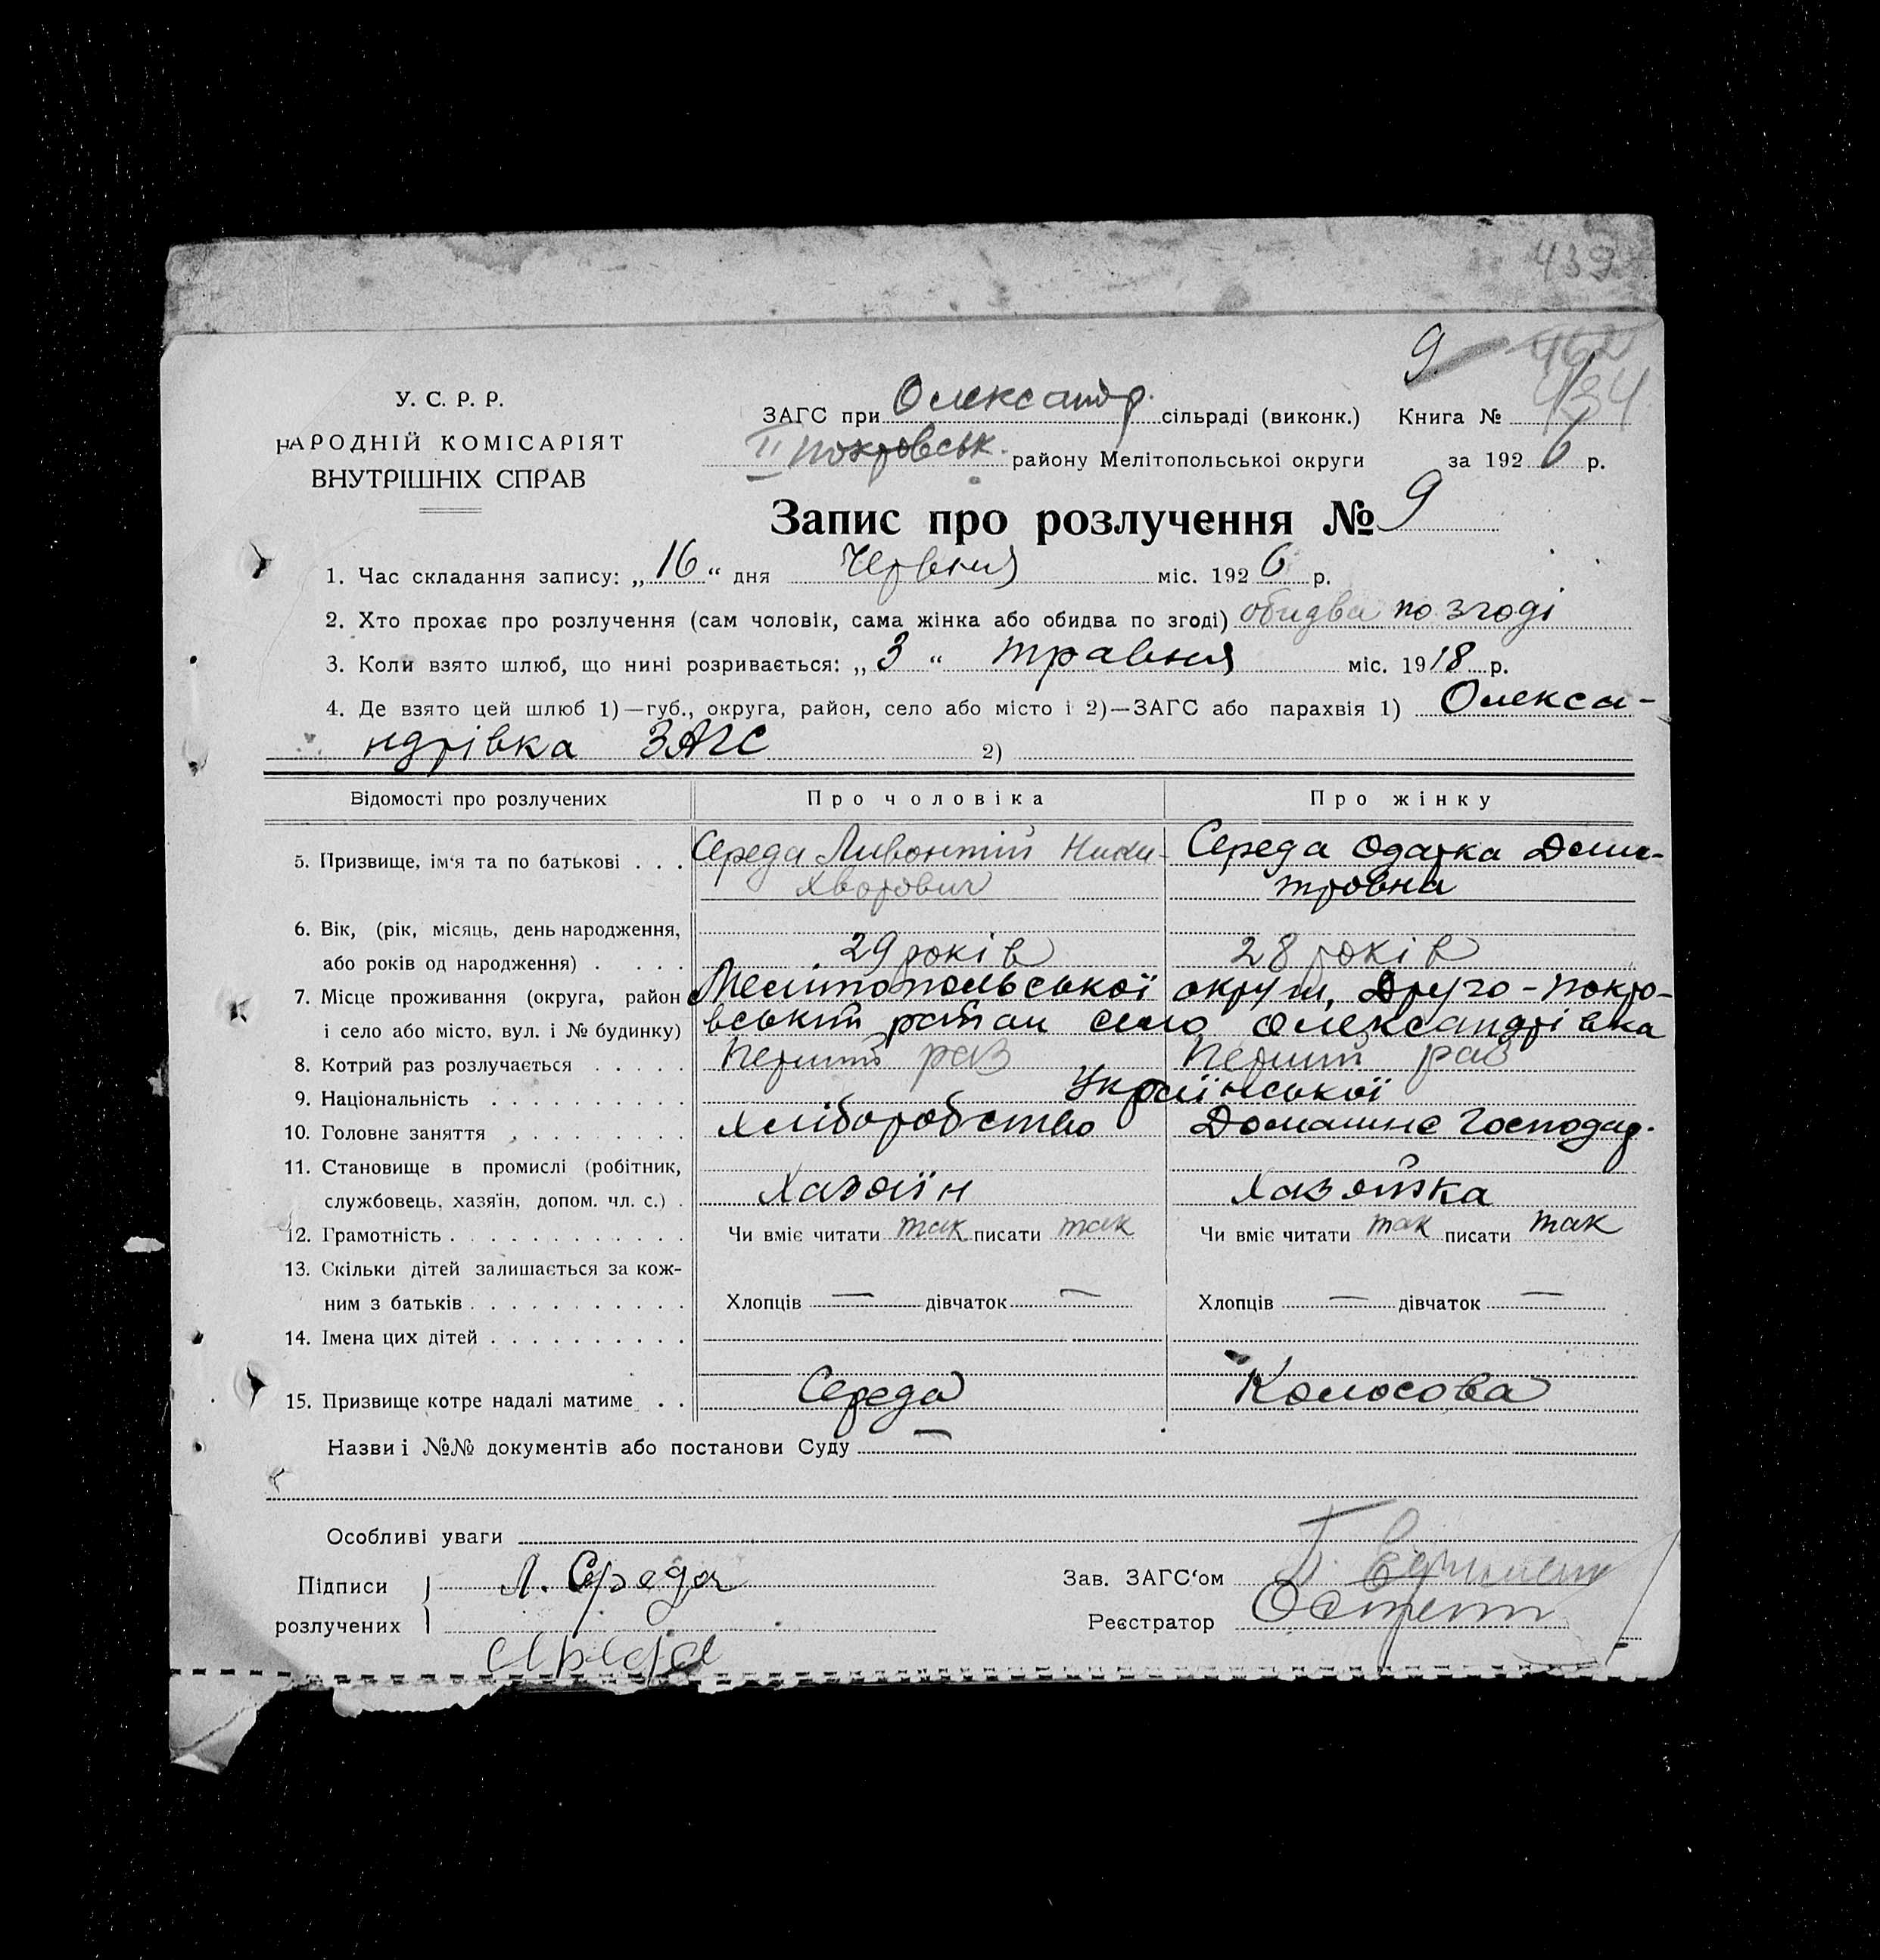 439
9.
462
434
У. С. Р. Р.
НАРОДНІЙ КОМІСАРІЯТ
ВНУТРІШНІХ СПРАВ
ЗАГС при Олександр. сільраді (виконк.) Книга №
II Покровськ. району Мелітопольськоі округи за 1926 р.
Запис про розлучення № 9
1. Час складання запису: „16“ дня Червня міс. 1926 р.
2. Хто прохає про розлучення (сам чоловік, сама жінка або обидва по згоді) обидва по згоді
3. Коли взято шлюб, що нині розривається: „3“ травня міс. 1918 р.
4. Де взято цей шлюб 1)—губ., округа, район, село або місто і 2)—ЗАГС або парахвія 1) Олекса-
ндрівка ЗАГС 2)
Відомості про розлучених Про чоловіка Про жінку
5. Призвище, ім‘я та по батькові . . . Середа Ливонтій Ники- Середа Одарка Дми-
хворович тровна
6. Вік, (рік, місяць, день народження,
або років од народження) . . . . 29 років 28 років
7. Місце проживання (округа, район Мелітопольської округи, Друго-Покро-
і село або місто, вул. і № будинку) вський район село Олександрівка
8. Котрий раз розлучається . . . . . Перший раз Перший раз
9. Національність . . . . . . . . . . Української
10. Головне заняття . . . . . . . . . Хліборобство Домашнє Господар.
11. Становище в промислі (робітник,
службовець, хазяїн, допом. чл. с.) . Хазяїн Хазяйка
12. Грамотність . . . . . . . . . . . . Чи вміє читати так писати так Чи вміє читати так писати так
13. Скільки дітей залишається за кож-
ним з батьків . . . . . . . . . . . Хлопців — дівчаток — Хлопців — дівчаток —
14. Імена цих дітей . . . . . . . . . .
15. Призвище котре надалі матиме . . Середа Колосова
Назви і №№ документів або постанови Суду —
Особливі уваги
Підписи Л. Середа Зав. ЗАГС‘ом
розлучених Реєстратор
Середа